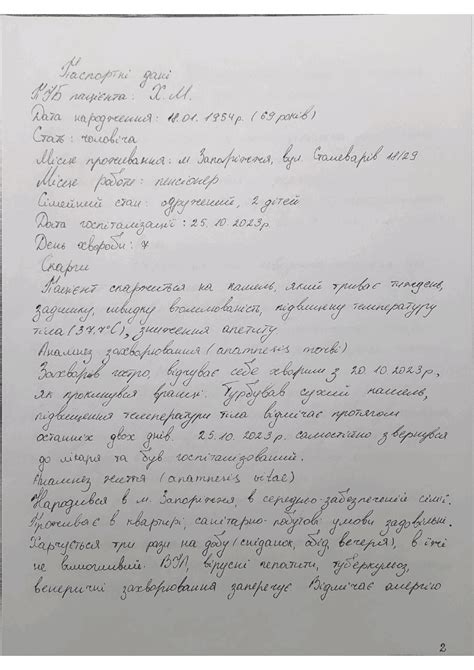 Паспортні дані
ПІБ пацієнта: Х.М.
Дата народження: 18.01.1954р. (69 років)
Стать: чоловіча
Місце проживання: м. Запоріжжя, вул. Сталеварів 18/29
Місце роботи: пенсіонер
Сімейний стан: одружений, 2 дітей
Дата госпіталізації: 25.10.2023р.
День хвороби: 7
Скарги
Пацієнт скаржиться на кашель, який триває тиждень,
задишку, швидку втомлюваність, підвищену температуру
тіла (37,7°C), зниження апетиту
Анамнез захворювання (anamnesis morbi)
Захворів гостро, відчуває себе хворим з 20.10.2023р.,
як прокинувся вранці. Турбував сухий кашель,
підвищення температури тіла відмічає протягом
останніх двох днів. 25.10.2023р. самостійно звернувся
до лікаря та був госпіталізований.
Анамнез життя (anamnesis vitae)
Народився в м. Запоріжжя, в середньо-забезпеченій сім'ї.
Проживає в квартирі, санітарно-побутові умови задовільні.
Харчується три рази на добу (сніданок, обід, вечеря), в їжі
не вимогливий. ВІЛ, вірусні гепатити, туберкульоз,
венеричні захворювання заперечує Відмічає алергію
2